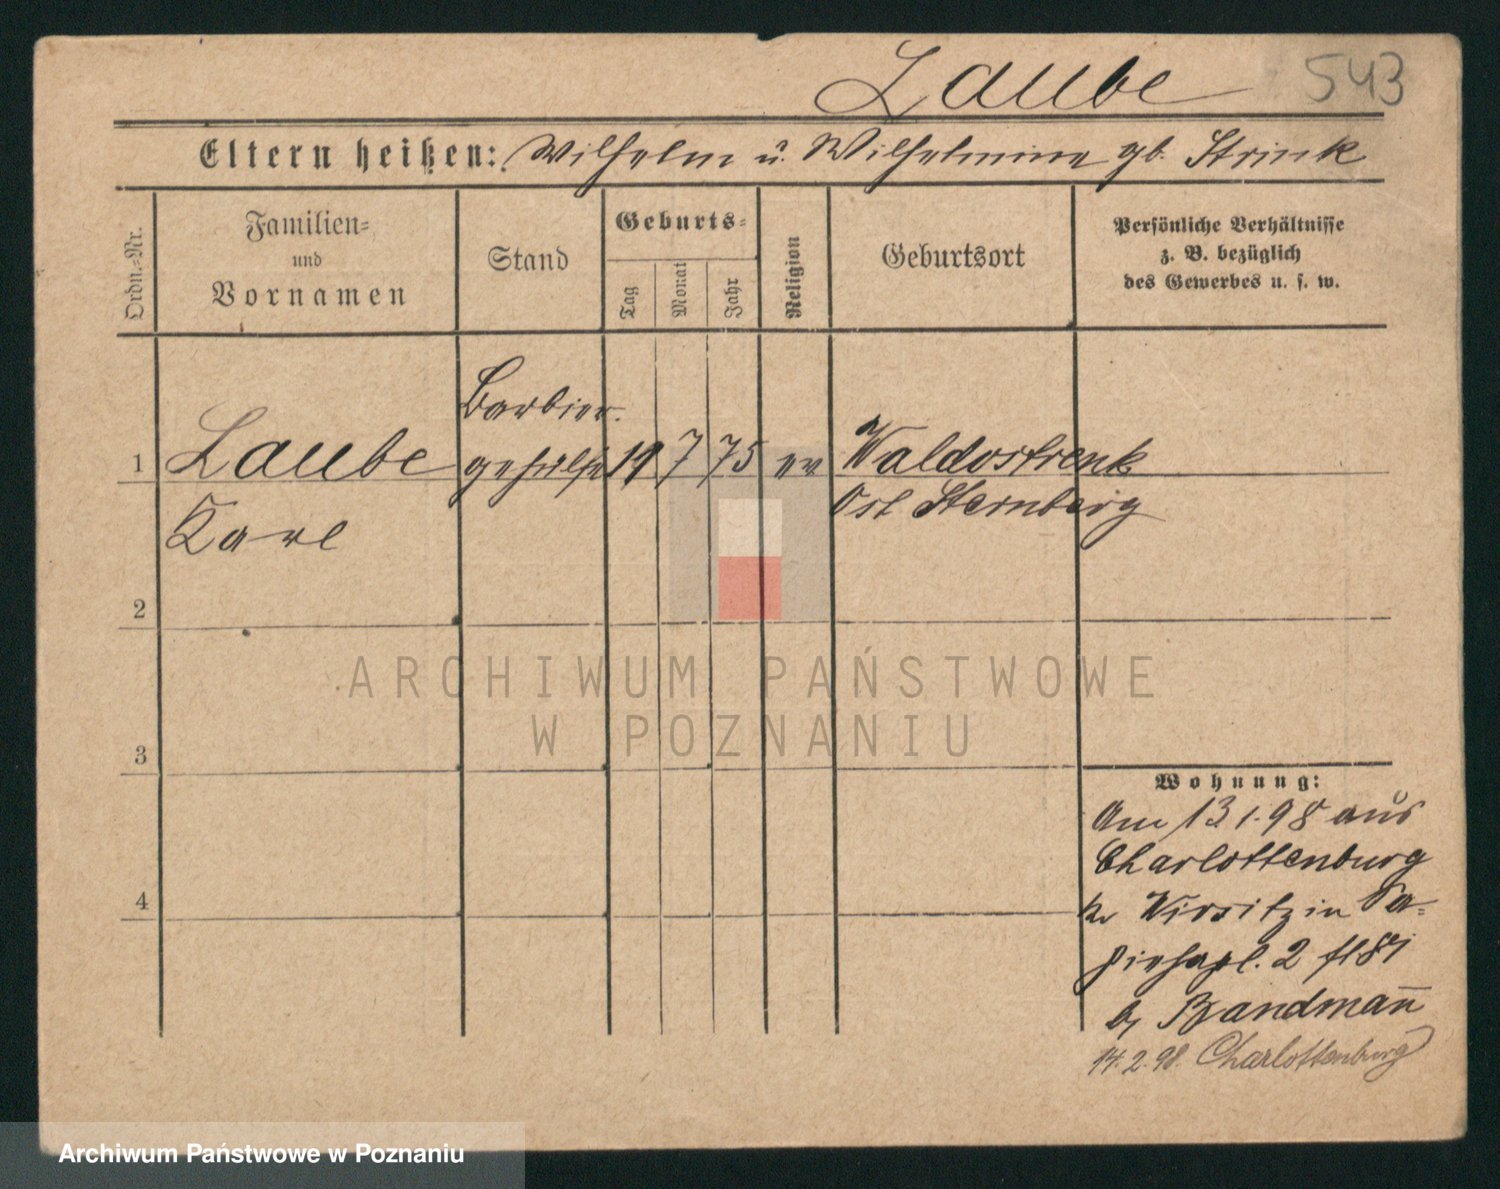 Laube 543
Eltern heißen: Wilhelm u. Wilhelmine gb. Strink
Ordn.-Nr.
Familien-
und
Vornamen
Stand
Geburts-
Tag
Monat
Jahr
Religion
Geburtsort
Persönliche Verhältnisse
z. B. bezüglich
des Gewerbes u. s. w.
1 Laube
Karl
Barbier
gehülfe
19 7 75 ev
Waldostrenk
Ost Sternberg
2
3
4
Wohnung:
Am 13 1. 98 aus
Charlottenburg
Sa-
piehapl. 2
b/ Brandmann
14. 2. 98. Charlottenburg
ARCHIWUM PAŃSTWOWE
W POZNANIU
Archiwum Państwowe w Poznaniu